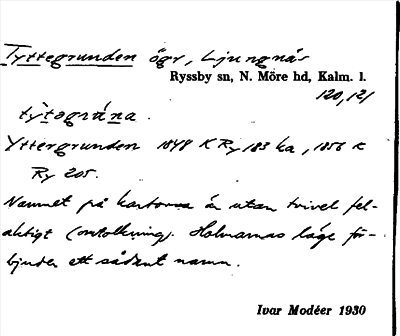 Tyttegrunden ögr, Ljungnäs
Ryssby sn, N. Möre hd, Kalm. l.
120,121
Yttergrunden 1848 K Ry 183 ka, 1856 K
Ry 205.
Namnet på kartorna är utan tvivel fel-
aktigt (omtolkning). Holmarnas läge för-
bjuder ett sådant namn.
Ivar Modéer 1930